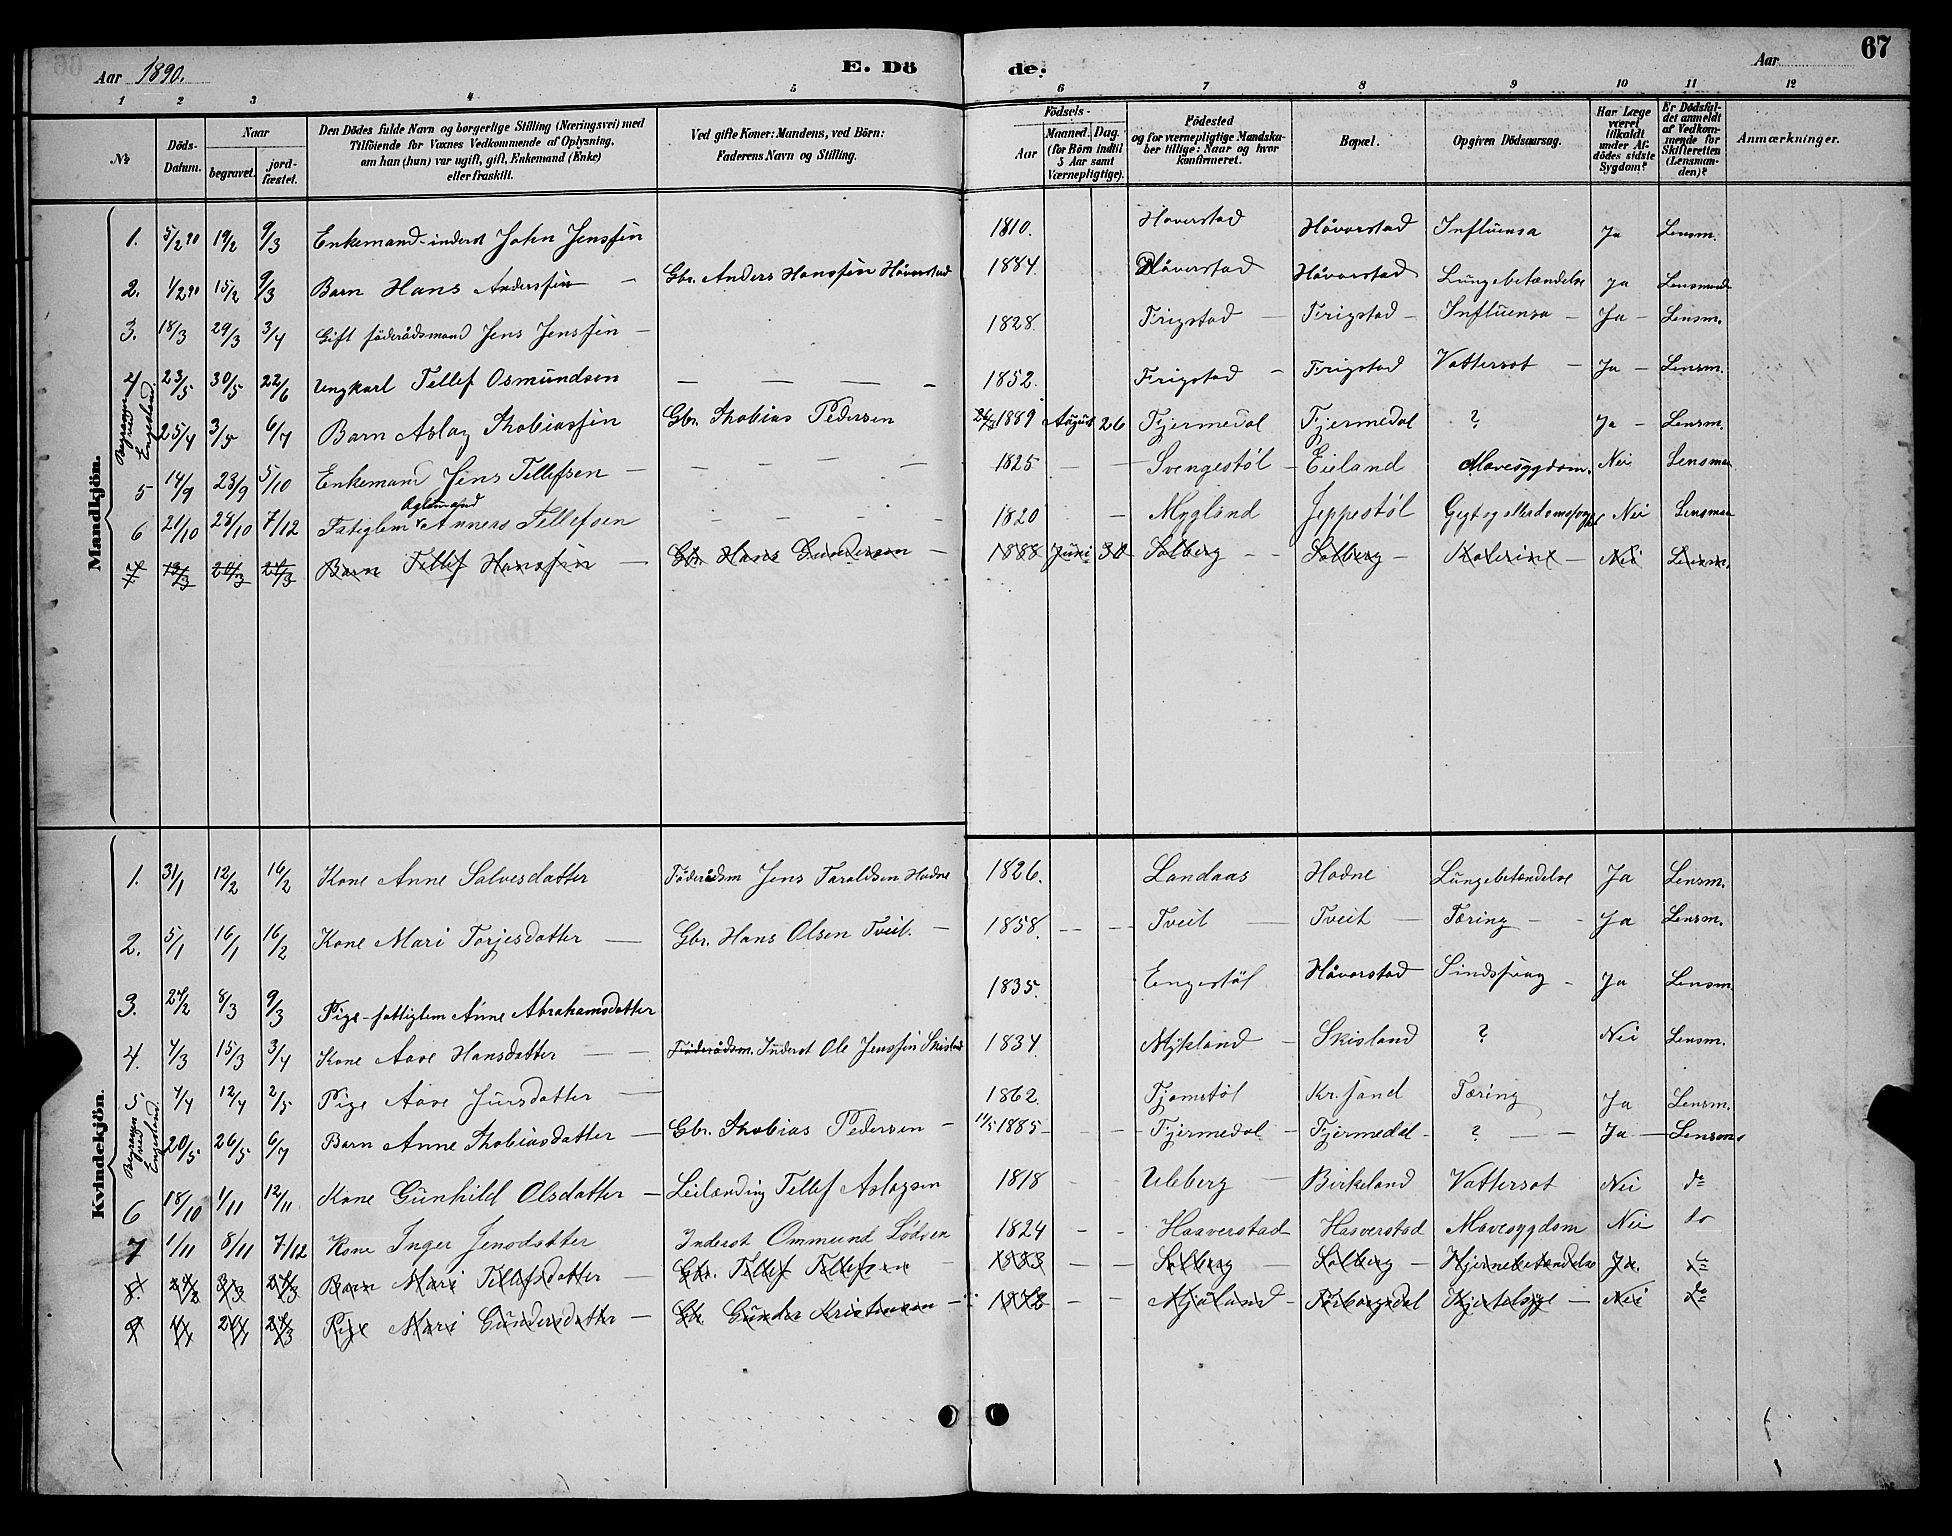 Aar 1890. E. Dö
de. Aar 67
1 2 3 4 5 6 7 8 9 10 11 12
No
Döds-Datum.
Naar
begravet.
jord-fæstet.
Den Dödes fulde Navn og borgerlige Stilling (Næringsvei) med
Tilföiende for Voxnes Vedkommende af Oplysning,
om han (hun) var ugift, gift, Enkemand (Enke)
eller fraskilt.
Ved gifte Koner: Mandens, ved Börn:
Faderens Navn og Stilling.
Födsels-
Aar
Maaned. Dag.
(for Börn indtil
5 Aar samt
Værnepligtige).
Födested
og for værnepligtige Mandska-
ber tillige: Naar og hvor
konfirmeret.
Bopæl.
Opgiven Dödsaarsag.
Har Læge
været
tilkaldt
under Af-
dödes sidste
Sygdom?
Er Dödsfal-
det anmeldt
af Vedkom-
mende for
Skifteretten
(Lensman-
den)?
Anmærkninger.
Mandkjön.
1. 5/2 90 19/2 9/3 Enkemand-inderst John Jenssön 1810. Haverstad Håverstad Influensa Ja Lensm.
2. 1/2 90 15/2 9/3 Barn Hans Anderssön — Gbr. Anders Hanssön Håverstad 1884. Håverstad Håverstad Lungebetændelse Ja Lensmand
3. 18/3 29/3 3/4 Gift föderådsmand Jens Jenssön — 1828. Frigstad — Frigstad — Influensa — Ja — Lensm.
4 23/5 30/5 22/6 Ungkarl Tellef Osmundsen — — — — 1852. Frigstad — Frigstad Vattersot — Ja — Lensm.
Begraven ved Engesland.
25/4 3/5 6/7 Barn Aslag Thobiassön Gbr. Thobias Pedersen 26/8 1889 August 26 Fjermedal Fjermedal ? Ja — Lensm.
5 14/9 23/9 5/10 Enkemand Jens Tellefsen — — — — — 1825 — — Svengestöl — Eieland Mavesygdom. Nei Lensman
6 21/10 28/10 7/12 Fatiglem Anners Tellefsen — — — — 1820 — Mygland Jeppestöl Gigt og Nei Lensman
7 13/3 24/3 Barn Tellef Hanssön — Gbr. Hans Gundersen — 1888 Juni 30 Solberg — — Solberg — Nei Lensm.
Kvindekjön.
1. 31/1 12/2 16/2 Kone Anne Salvesdatter Föderådsm Jens Taraldsen Hodne 1826. Landaas Hodne Lungebetændelse Ja Lensm.
2. 5/1 16/1 16/2 Kone Mari Torjesdatter — Gbr. Hans Olsen Tveit. — 1858. — — Tveit — Tveit — Tæring — — Ja Lensm.
3. 24/2 8/3 9/3 Pige-fattiglem Anne Abrahamsdatter 1835. Engestöl Håverstad Sindssvag — Ja Lensm.
4. 4/3 15/3 3/4 Kone Aase Hansdatter — — Föderådsm. Inderst Ole Jenssön Skisland 1834 Mykland — Skisland ? Nei Lensm.
5 4/4 12/4 2/5 Pige Aase Jursdatter — 1862. Fjomstöl Kr.sand Tæring Ja Lensm.
Begraven ved Engesland.
20/5 26/5 6/7 Barn Anne Thobiasdatter — Gbr. Thobias Pedersen — 14/5 1885 — — Fjermedal — Fjermedal — ? — — Ja — Lensm.
6 18/10 1/11 12/11. Kone Gunhild Olsdatter — Leilænding Tellef Aslagsen 1818 — — Uleberg — Birkeland Vattersot Nei do
7 1/11 8/11 7/12 Kone Inger Jensdatter Inderst Ommund 1824 — — Haaverstad Haaverstad Mavesygdom Nei do
8 24/2 3/3 24/3 Barn Mari Tellefsdatter — Gbr. Tellef Tellefsen — 1883 — — Solberg — Solberg — Hjernebetændelse Ja. do
9 24/3 Pige Mari Gundersdatter — Gb. Gunder Kristensen — 1872 — — Mjåland — Kjertelsyge — Nei do